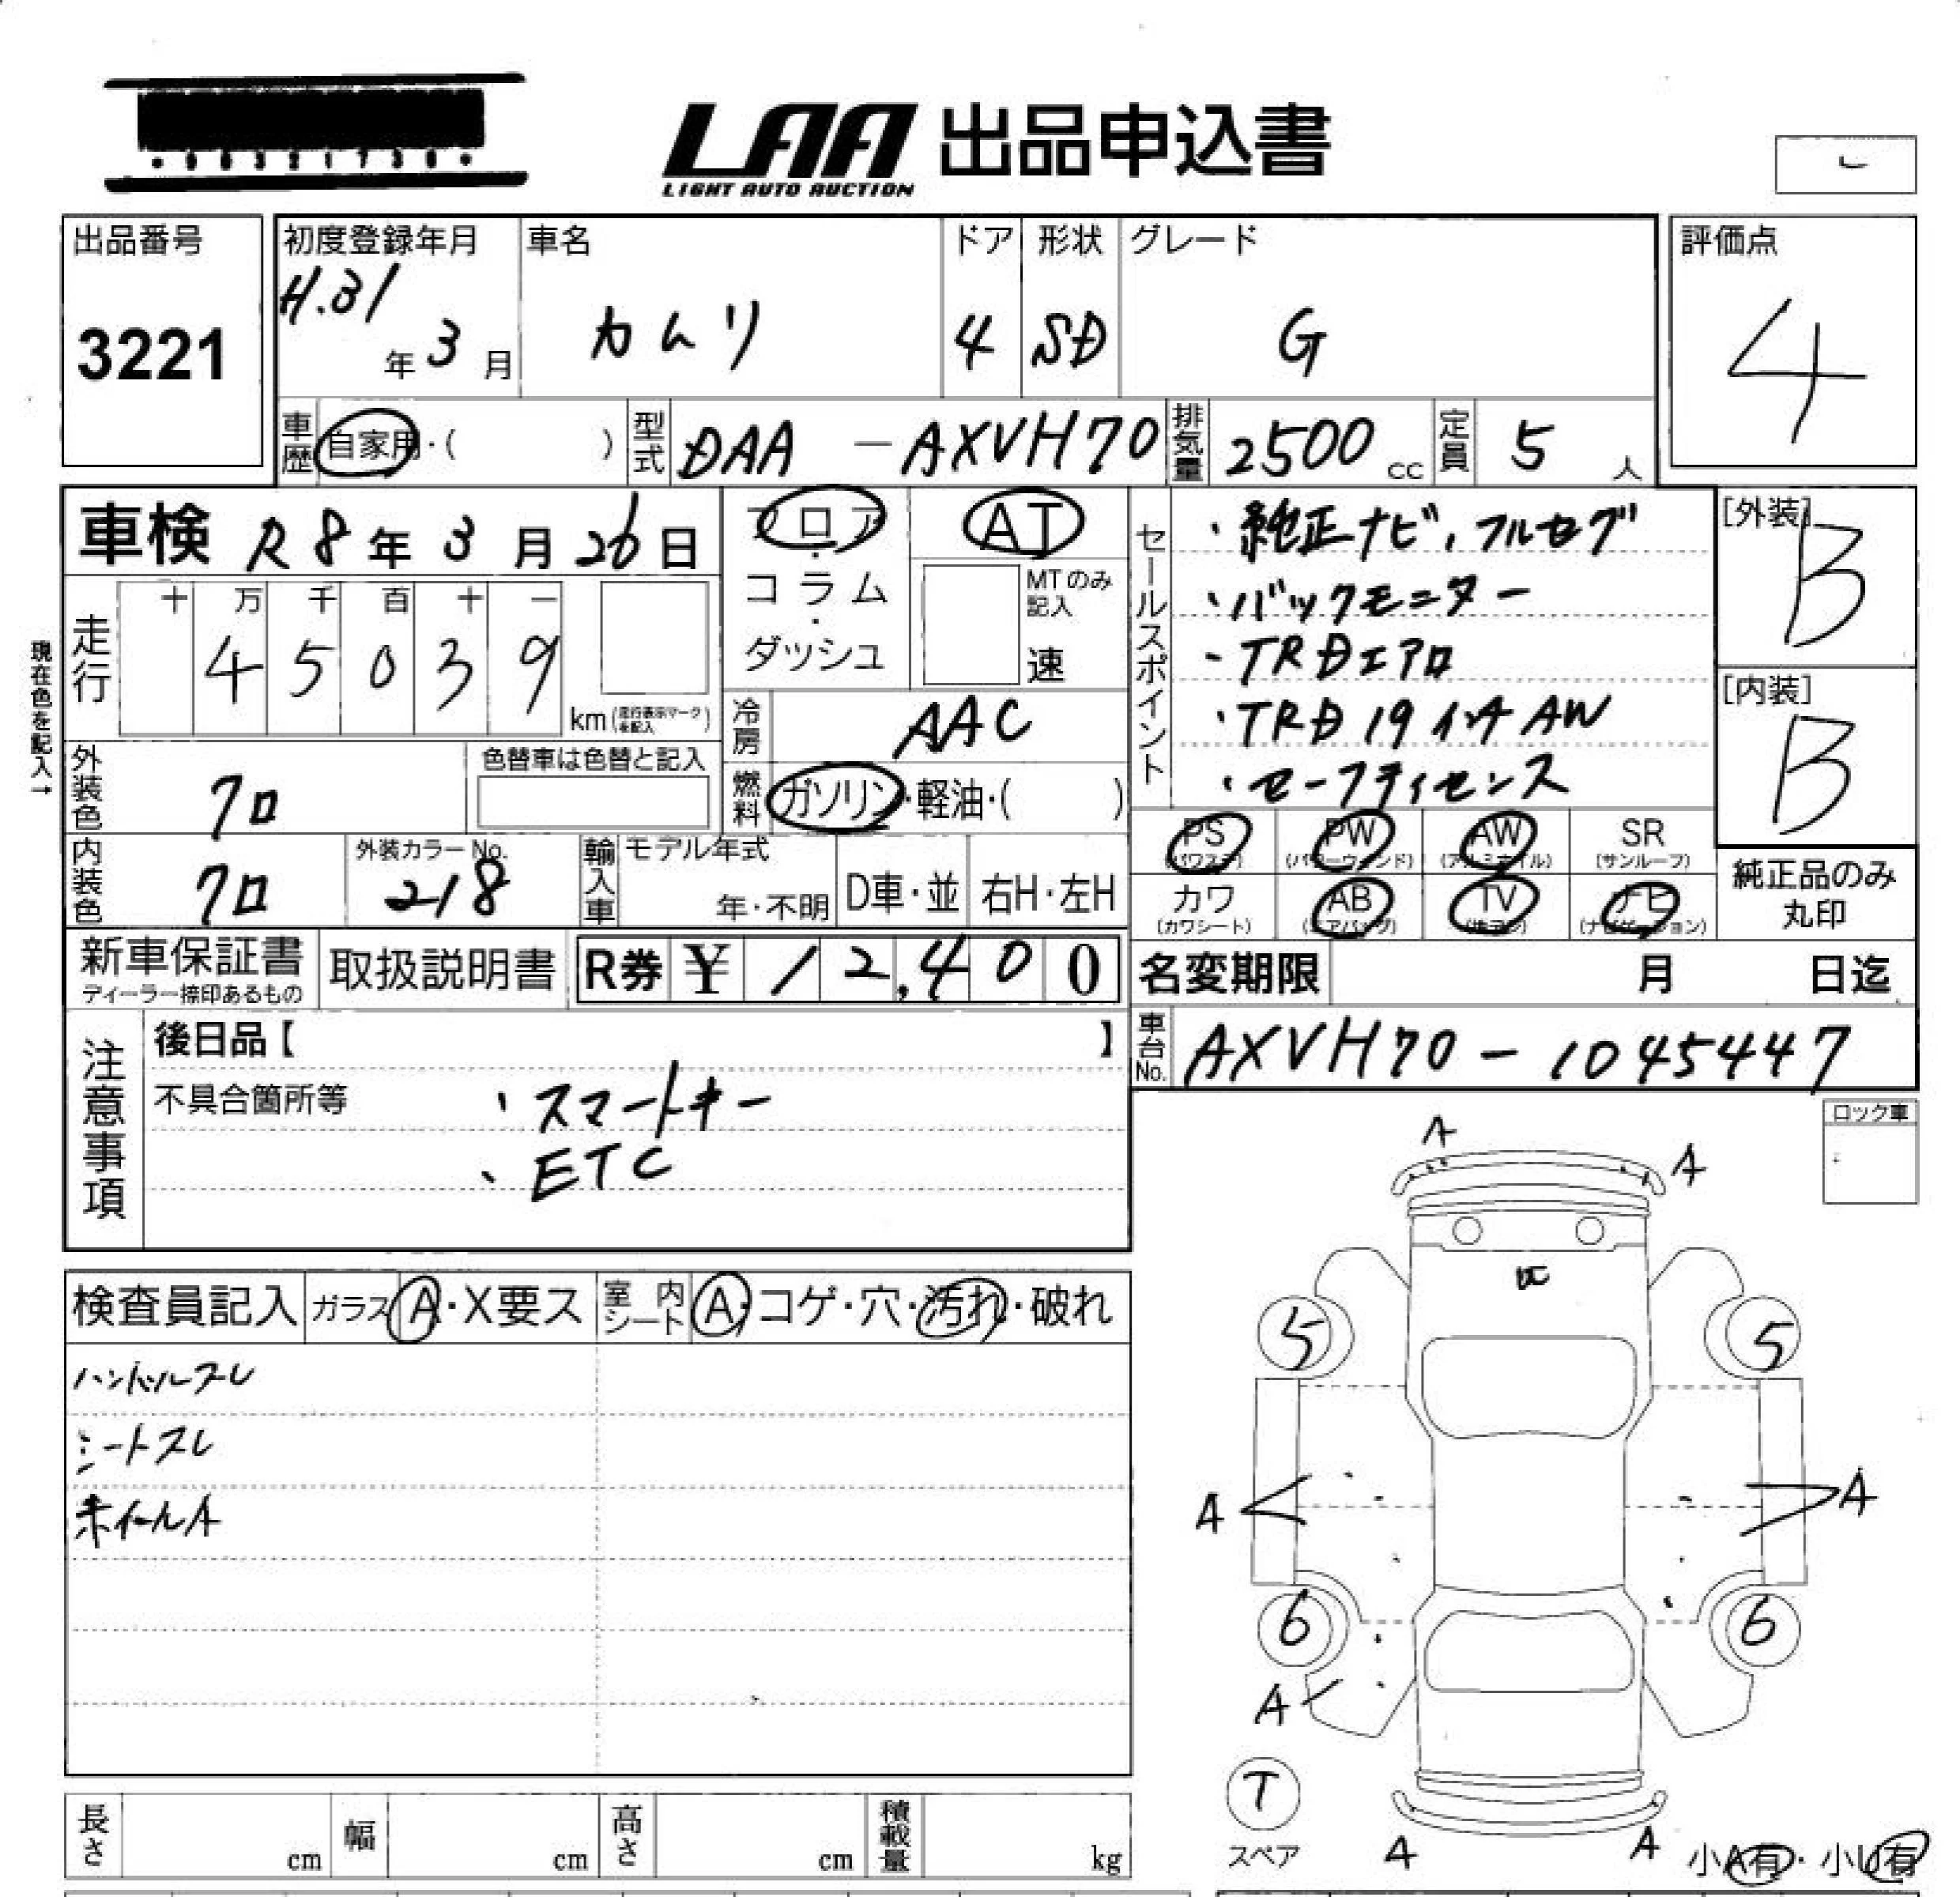 LAA 出品申込書
LIGHT AUTO AUCTION
出品番号
3221
初度登録年月
H.31年3月
車名
カムリ
ドア
4
形状
SD
グレード
G
評価点
4
車歴 自家用・( )
型式 DAA-AXVH70
排気量 2500cc
定員 5人
車検 R8年3月26日
フロア・コラム・ダッシュ
AT
MTのみ記入
速
セールスポイント
・純正ナビ、フルセグ
・バックモニター
・TRDエアロ
・TRD19インチAW
・セーフティセンス
[外装]
B
[内装]
B
現在色を記入→
走行
十 万 千 百 十 一
4 5 0 3 9
km(走行表示マークを記入)
冷房 AAC
燃料 ガソリン・軽油・( )
外装色 クロ
色替車は色替と記入
内装色 クロ
外装カラーNo.
218
輸入車
モデル年式
年・不明
D車・並
右H・左H
PS
(パワステ)
PW
(パワーウィンド)
AW
(アルミホイル)
SR
(サンルーフ)
カワ
(カワシート)
AB
(エアバッグ)
TV
ナビ
(ナビゲーション)
純正品のみ
丸印
新車保証書
ディーラー捺印あるもの
取扱説明書
R券 ¥12,400
名変期限 月 日迄
車台No. AXVH70-1045447
注意事項
後日品【 】
不具合箇所等
・スマートキー
・ETC
ロック車
検査員記入
ガラス A・X要ス
室内シート A・コゲ・穴・汚れ・破れ
ハンドルスレ
シートスレ
ホイールA
A
A
5
5
A
A
6
6
A
T
スペア
A
A
小A有・小U有
長さ cm
幅 cm
高さ cm
積載量 kg